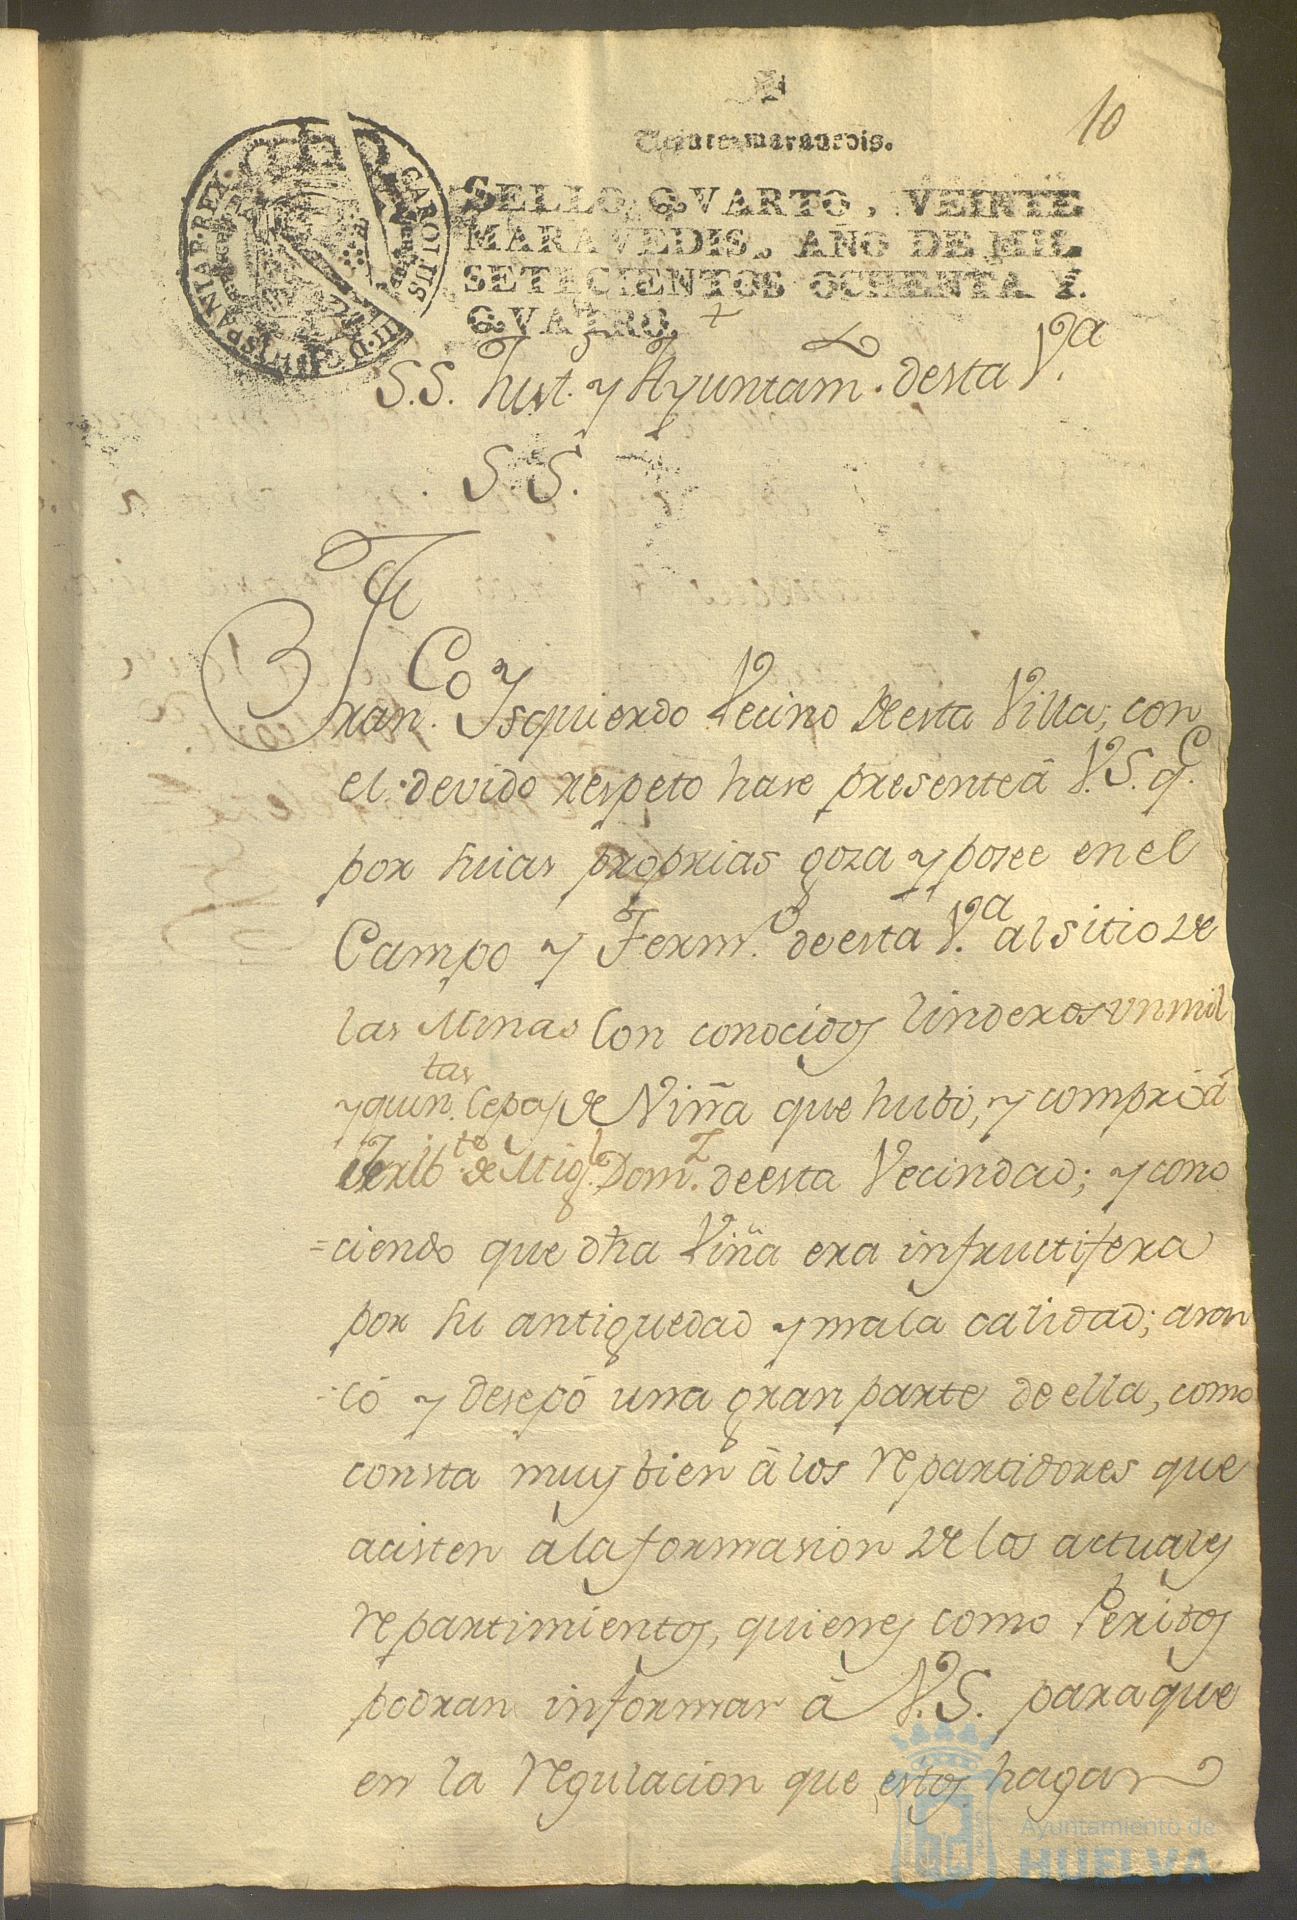 10
Veinte maravedis.
SELLO QVARTO, VEINTE
MARAVEDIS, AÑO DE MIL
SETECIENTOS OCHENTA Y
QVATRO.
CAROLUS III D G HISPANIAR REX
S.S. Just. y Ayuntam. desta V.a
S. S.
Fran.co Ysquierdo Vecino de esta Villa, con
el devido respeto hase presente â V.S. q.e
por suias proprias goza y posee en el
Campo y Term.o de esta V.a al sitio de
las Minas Con conocidos linderos un mil
y quin.tas Cepas de Viña que hubó, y compró â
de Mig.l Dom.z de esta Vecindad; y cono
=ciendo que dha Viña era infructifera
por su antiguedad y mala calidad; aran
có y desepó una gran parte de ella, como
consta muy bien â los repartidores que
acisten â la formasion de los actuales
repartimientos, quienes como Peritos
podran informar â V.S. para que
en la regulacion que estos hagan
Ayuntamiento de
HUELVA